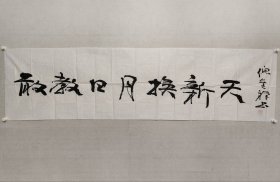 敢教日月换新天